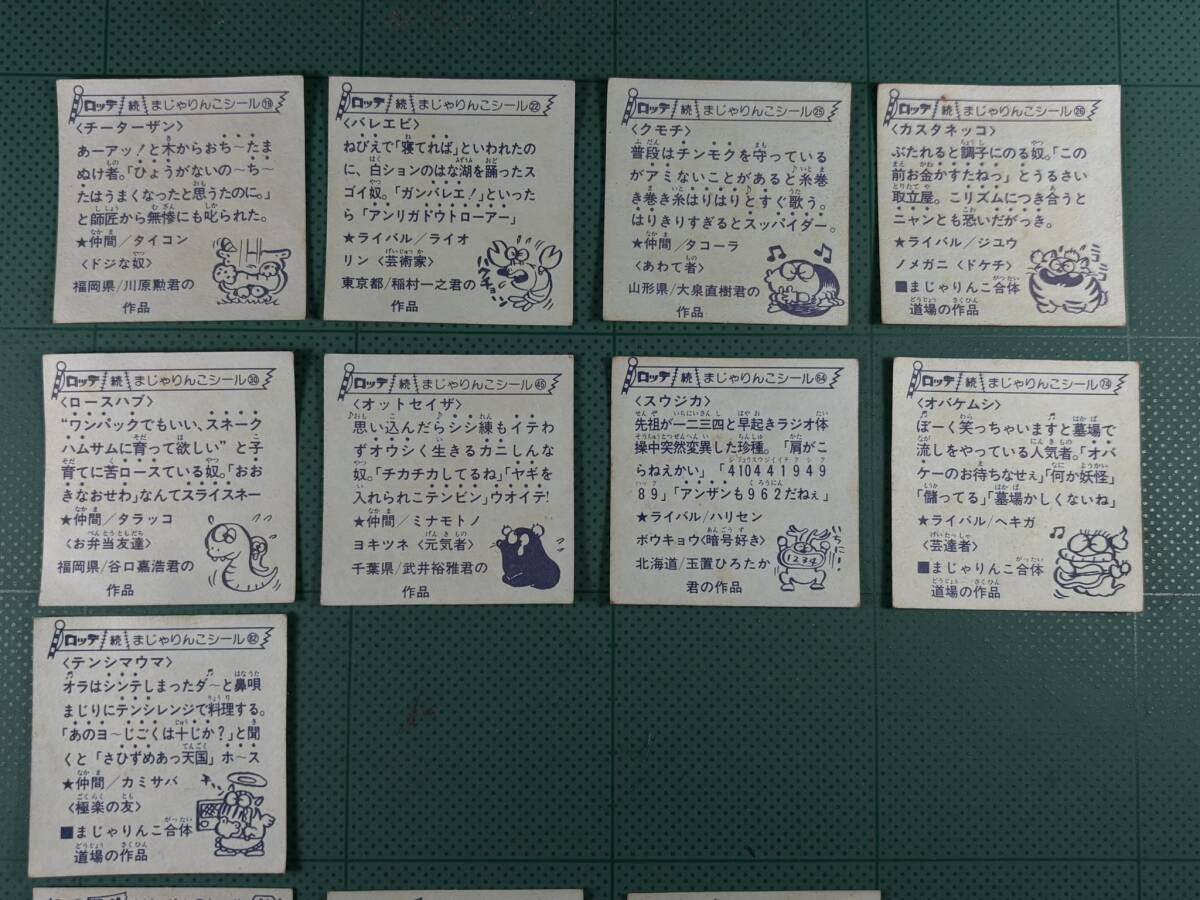 ロッテ 続 まじゃりんこシール⑲
〈チーターザン〉
あーアッ!と木からおち~たま
ぬけ者。「ひょうがないの~ち~
たはうまくなったと思うたのに。」
と師匠から無惨にも叱られた。
★仲間/タイコン
〈ドジな奴〉
福岡県/川原勲君の
作品
ロッテ 続 まじゃりんこシール㉒
〈バレエビ〉
ねびえで「寝てれば」といわれたの
に、白ションのはな湖を踊ったス
ゴイ奴。「ガンバレエ!」といった
ら「アンリガドウトローアー」
★ライバル/ライオ
リン〈芸術家〉
東京都/稲村一之君の
作品
ロッテ 続 まじゃりんこシール㉕
〈クモチ〉
普段はチンモクを守っている
がアミないことがあると♪糸巻
き巻き糸はりはりとすぐ歌う。
はりきりすぎるとスッパイダー。
★仲間/タコーラ
〈あわて者〉
山形県/大泉直樹君の
作品
ロッテ 続 まじゃりんこシール㉖
〈カスタネッコ〉
ぶたれると調子にのる奴。「この
前お金かすたねっ」とうるさい
取立屋。こリズムにつき合うと
ニャンとも恐いだがっき。
★ライバル/ジユウ
ノメガニ〈ドケチ〉
■まじゃりんこ合体
道場の作品
ロッテ 続 まじゃりんこシール㉚
〈ロースハブ〉
“ワンパックでもいい、スネーク
ハムサムに育って欲しい”と子
育てに苦ロースている奴。「おお
きなおせわ」なんてスライスネー
★仲間/タラッコ
〈お弁当友達〉
福岡県/谷口嘉浩君の
作品
ロッテ 続 まじゃりんこシール㊻
〈オットセイザ〉
♪思い込んだらシシ練もイテわ
ずオウシく生きるカニしんな
奴。「チカチカしてるね」「ヤギを
入れられこテンビン」ウオイテ!
★仲間/ミナモトノ
ヨキツネ〈元気者〉
千葉県/武井裕雅君の
作品
ロッテ 続 まじゃりんこシール64
〈スウジカ〉
先祖が一二三四と早起きラジオ体
操中突然変異した珍種。「肩がこ
らねえかい」「410441949
89」「アンザンも962だねぇ」
★ライバル/ハリセン
ボウキョウ〈暗号好き〉
北海道/玉置ひろたか
君の作品
いちにっ
1234
ロッテ 続 まじゃりんこシール74
〈オバケムシ〉
♪ぼーく笑っちゃいますと墓場で
流しをやっている人気者。「オバ
ケーのお待ちなせぇ」「何か妖怪」
「儲ってる」「墓場かしくないね」
★ライバル/ヘキガ
〈芸達者〉
■まじゃりんこ合体
道場の作品
ロッテ 続 まじゃりんこシール82
〈テンシマウマ〉
オラはシンテしまったダ~と鼻唄
まじりにテンシレンジで料理する。
「あのヨ~じごくは十じか?」と聞
くと「さひずめあっ天国」ホ~ス
★仲間/カミサバ
〈極楽の友〉
■まじゃりんこ合体
道場の作品